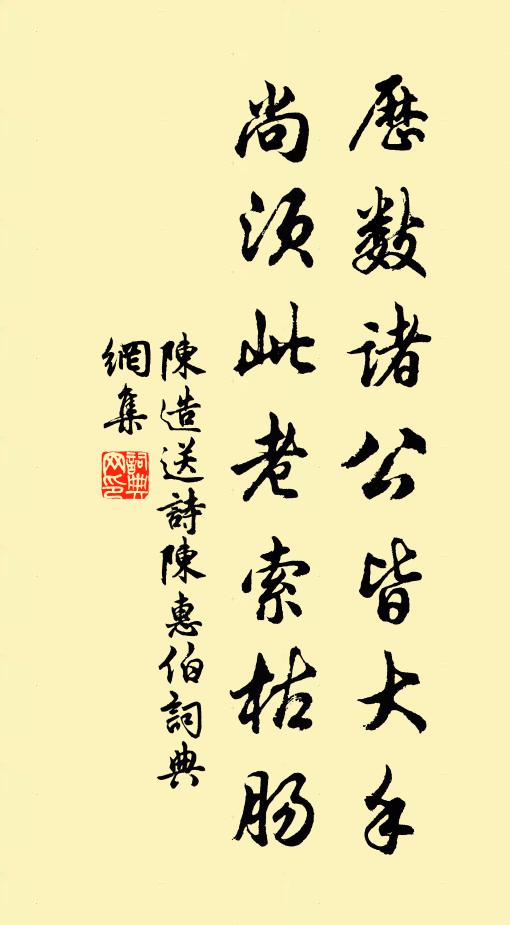 歷數諸公皆大手
尚須此老索枯腸
陳造送詩陳惠伯詞典
網集
詞典網印